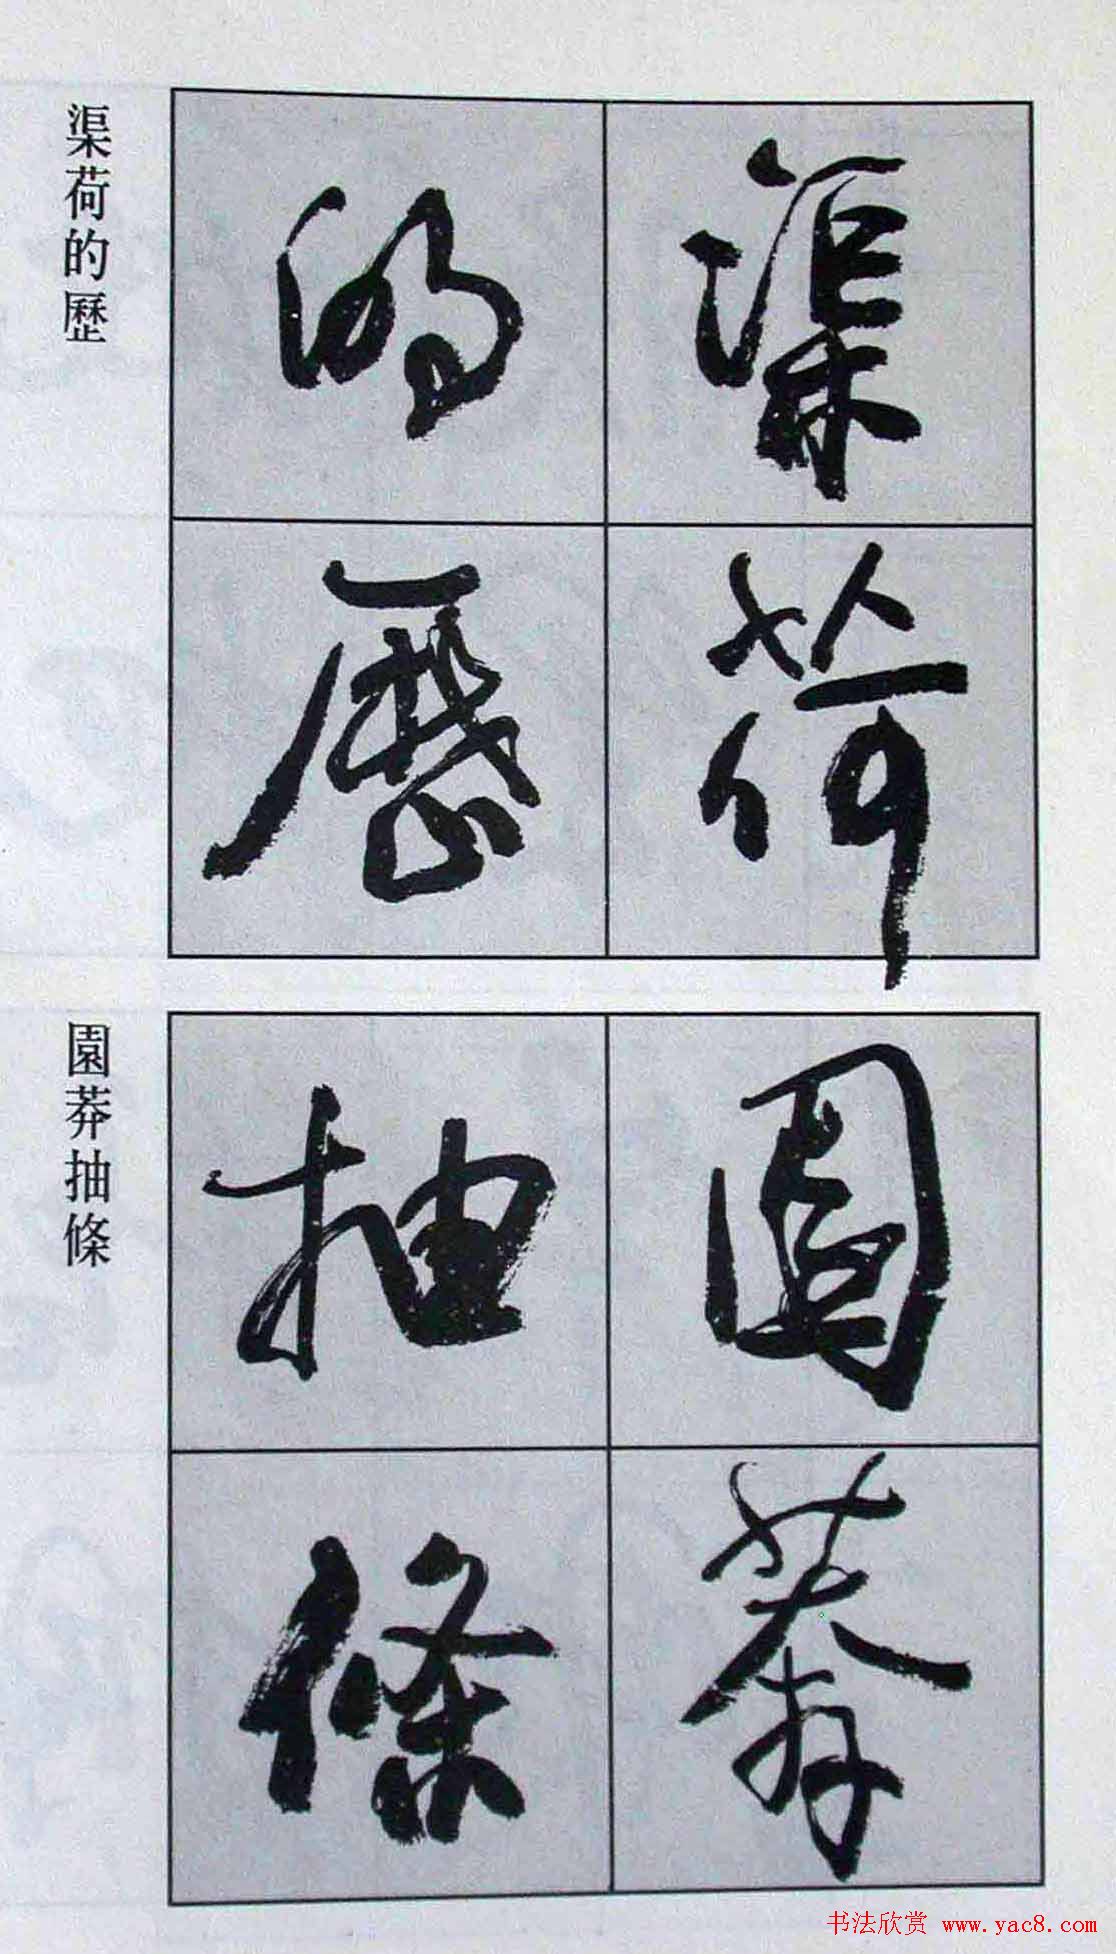 渠荷
的歷
渠荷的歷
園莽
抽條
園莽抽條
书法欣赏 www.yac8.com